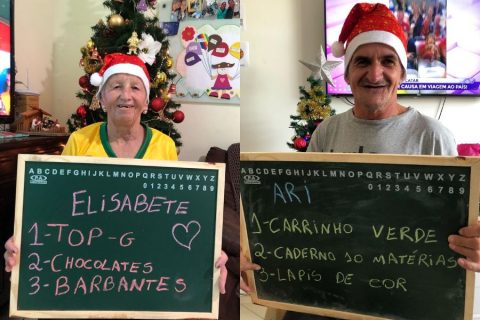 ABCDEFGHIJKLMNOPQRSTUVWXYZ
0123456789
ELISABETE
1-TOP-G
2-CHOCOLATES
3-BARBANTES
CATAR
CAUSA EM VIAGEM AO PAÍS!
ABCDEFGHIJKLMNOPQRSTUVWXYZ
0123456789
ARI
1-CARRINHO VERDE
2-CADERNO 10 MATÉRIAS
3-LAPIS DE COR